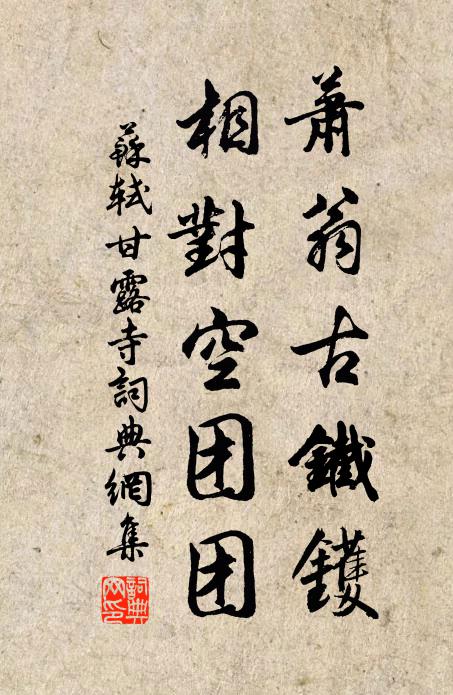 蕭翁古鐵鑊
相對空团团
蘇軾甘露寺詞典網集
詞典
网印